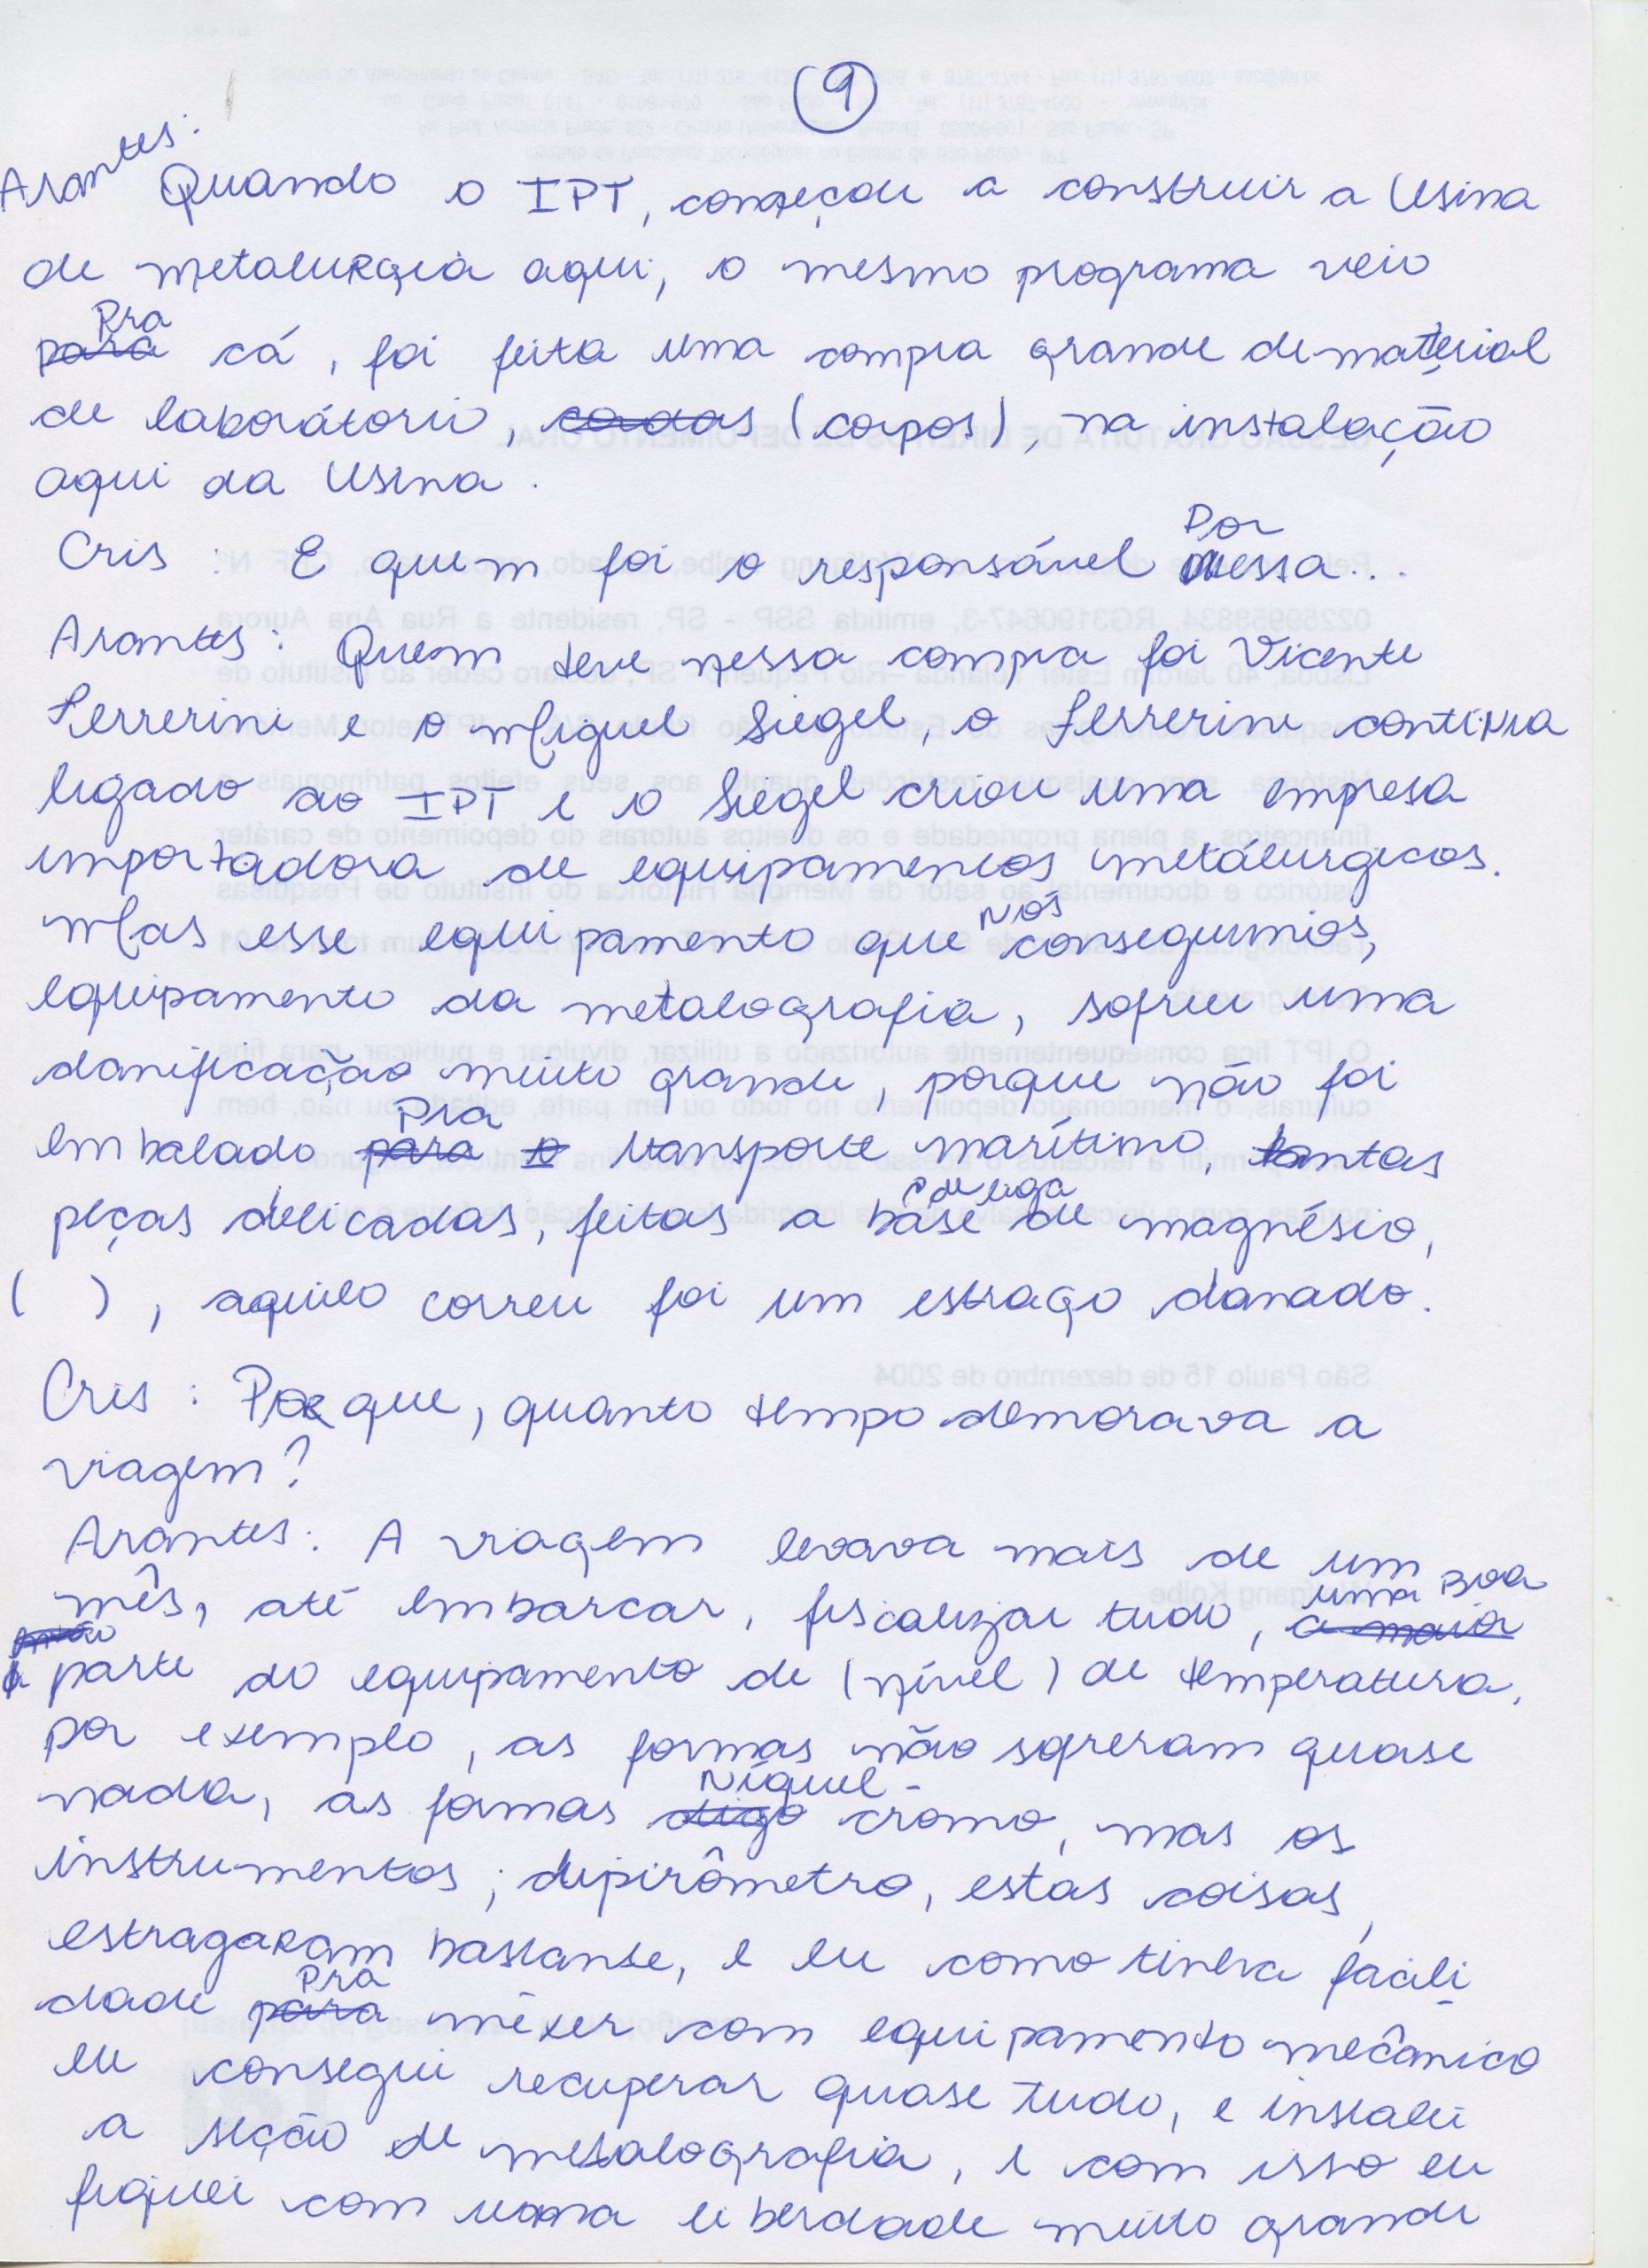 9
Arantes: Quando o IPT, começou a construir a Usina
de metalurgia aqui, o mesmo programa veio
para Pra cá, foi feita uma compra grande de material
de laborátorio, (corpos), na instalação
aqui da Usina.
Cris : E quem foi o responsável Por essa...
Arantes: Quem teve nessa compra foi Vicente
Ferrerini e o Miguel Siegel, o Ferrerini continua
ligado ao IPT e o Siegel criou uma empresa
importadora de equipamentos metálurgicos.
Mas esse equipamento que nós conseguimos,
equipamento da metalografia, sofreu uma
danificação muito grande, porque não foi
embalado para Pra o transporte marítimo, tantas
peças delicadas, feitas a base de liga de magnésio,
( ), aquilo correu foi um estrago danado.
Cris : Porque, quanto tempo demorava a
viagem?
Arantes: A viagem levava mais de um
mês, até embarcar, fiscalizar tudo, a maior uma boa
parte do equipamento de (nível) de temperatura,
por exemplo, as formas não sofreram quase
nada, as formas digo Níquel - cromo, mas os
instrumentos, dipirômetro, estas coisas,
estragaram bastante, e eu como tinha facili
dade para Pra mêxer com equipamento mecânico
eu consegui recuperar quase tudo, e instalei
a seção de metalografia, e com isso eu
fiquei com uma liberdade muito grande